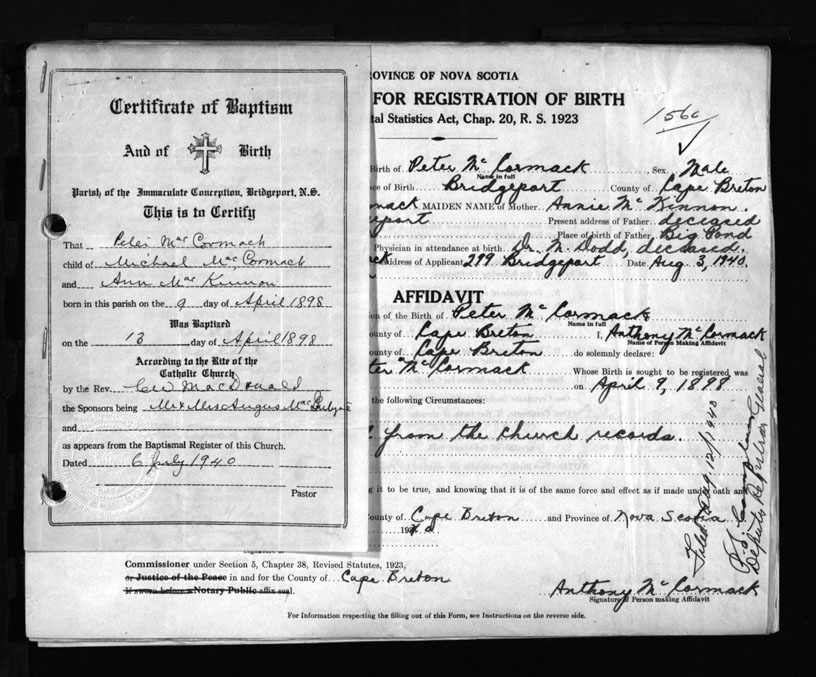 Certificate of Baptism
And of Birth
Parish of the Immaculate Conception, Bridgeport, N.S.
This is to Certify
That Peter Mac Cormack
child of Michael Mac Cormack
and Ann Mac Kinnon
born in this parish on the 9 day of April 1898
Was Baptized
on the 13 day of April 1898
According to the Rite of the
Catholic Church
by the Rev. MacDonald
the Sponsors being Mr & Mrs Angus Mac
and
as appears from the Baptismal Register of this Church.
Dated 6 July 1940
Pastor
ROVINCE OF NOVA SCOTIA
FOR REGISTRATION OF BIRTH
tal Statistics Act, Chap. 20, R. S. 1923
1560
Birth of Peter Mc Cormack Sex, Male
Name in full
ce of Birth Bridgeport County of Cape Breton
mack MAIDEN NAME of Mother Annie Mc Kinnon
eport Present address of Father deceased
Place of birth of Father, Big Pond
Physician in attendance at birth Dr. N. Dodd, deceased.
ck Address of Applicant 299 Bridgeport Date Aug. 3, 1940.
AFFIDAVIT
ion of the Birth of Peter Mc Cormack
Name in full
ounty of Cape Breton I, Anthony Mc Cormack
Name of Person Making Affidavit
ounty of Cape Breton do solemnly declare:
ter Mc Cormack Whose Birth is sought to be registered was
on April 9, 1898
the following Circumstances:
from the church records.
g it to be true, and knowing that it is of the same force and effect as if made under oath and
ounty of Cape Breton and Province of Nova Scotia
Commissioner under Section 5, Chapter 38, Revised Statutes, 1923,
or Justice of the Peace in and for the County of Cape Breton
If sworn before a Notary Public affix seal.
Anthony Mc Cormack
Signature of Person making Affidavit
For Information respecting the filling out of this Form, see Instructions on the reverse side.
Filed Aug. 12/1940
Deputy Registrar General